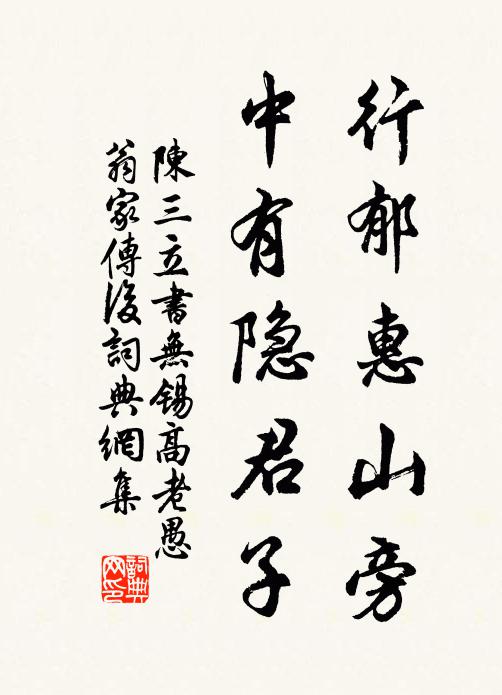 行郁惠山旁
中有隐君子
陳三立書無錫高老愚
翁家傳後詞典網集
詞典网印